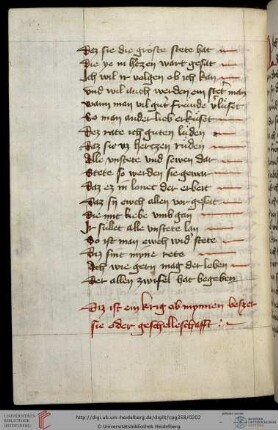 Daz sie die groste stete hat
Die ye in hertzen wart gesat
Ich wil ir volgen ob ich kan
Vnd wil auch werden ein stet man
Wann man vil gut freude vluset
So man ander lieb erkuset
Dez rate ich guten luden
Daz sie vz hertzen ruden
Alle vnstete vnd sewen dar
Stete so werden sie gewar
Daz ez in loner der erbeit
Daz sy uch allen vor geseit
Die mit liebe vmb gan
Ir sullet alle vnstete lan
So ist man uch wid stete
Diz sint myne rete
Ach wie gern mag der leben
Der allen zwifel hat begeben
Diz ist ein krig ob mynnen beszer
sie oder geschelleschafft
http://digi.ub.uni-heidelberg.de/diglit/cpg358/0202
© Universitätsbibliothek Heidelberg